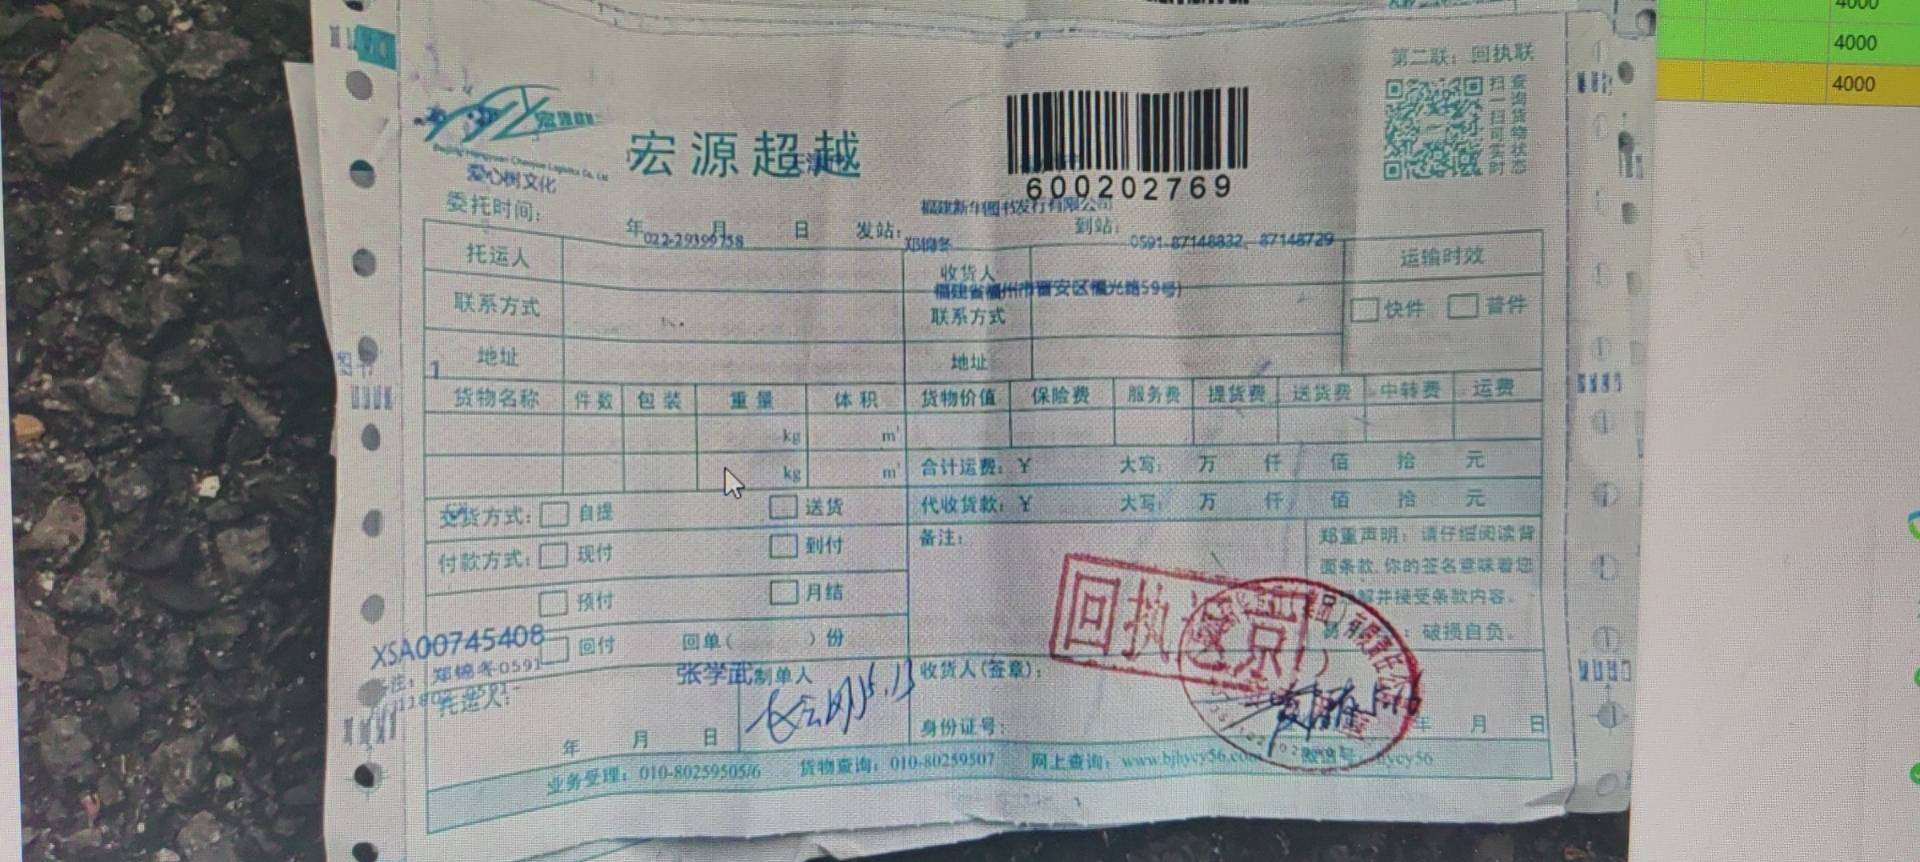 4000
4000
4000
第二联：回执联
扫一扫可实时
查询货物状态
宏源超越
爱心树文化
600202769
福建新华图书发行有限公司
委托时间： 年 月 日 发站： 到站：
022-29399758
郑锦冬
0591-87148832、87148729
托运人 收货人 运输时效
福建省福州市晋安区福光路59号)
联系方式 联系方式 快件 普件
地址 地址
1
货物名称 件数 包装 重量 体积 货物价值 保险费 服务费 提货费 送货费 中转费 运费
kg m³
kg m³ 合计运费：￥ 大写： 万 仟 佰 拾 元
交货方式： 自提 送货 代收货款：￥ 大写： 万 仟 佰 拾 元
付款方式： 现付 到付 备注： 郑重声明：请仔细阅读背
面条款，你的签名意味着您
预付 月结 解并接受条款内容。
回付 回单( )份 破损自负。
XSA00745408
回执
张学武 制单人 收货人(签章)：
托运人：
5.13
身份证号：
年 月 日 年 月 日
业务受理：010-80259505/6 货物查询：010-80259507 网上查询：www.bjhycy56.com